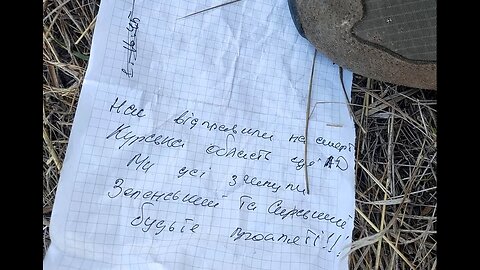 Нас відправили на смерть
Курська область це АД
Ми усі загинули
Зеленський та Сирський
будьте прокляті!!!